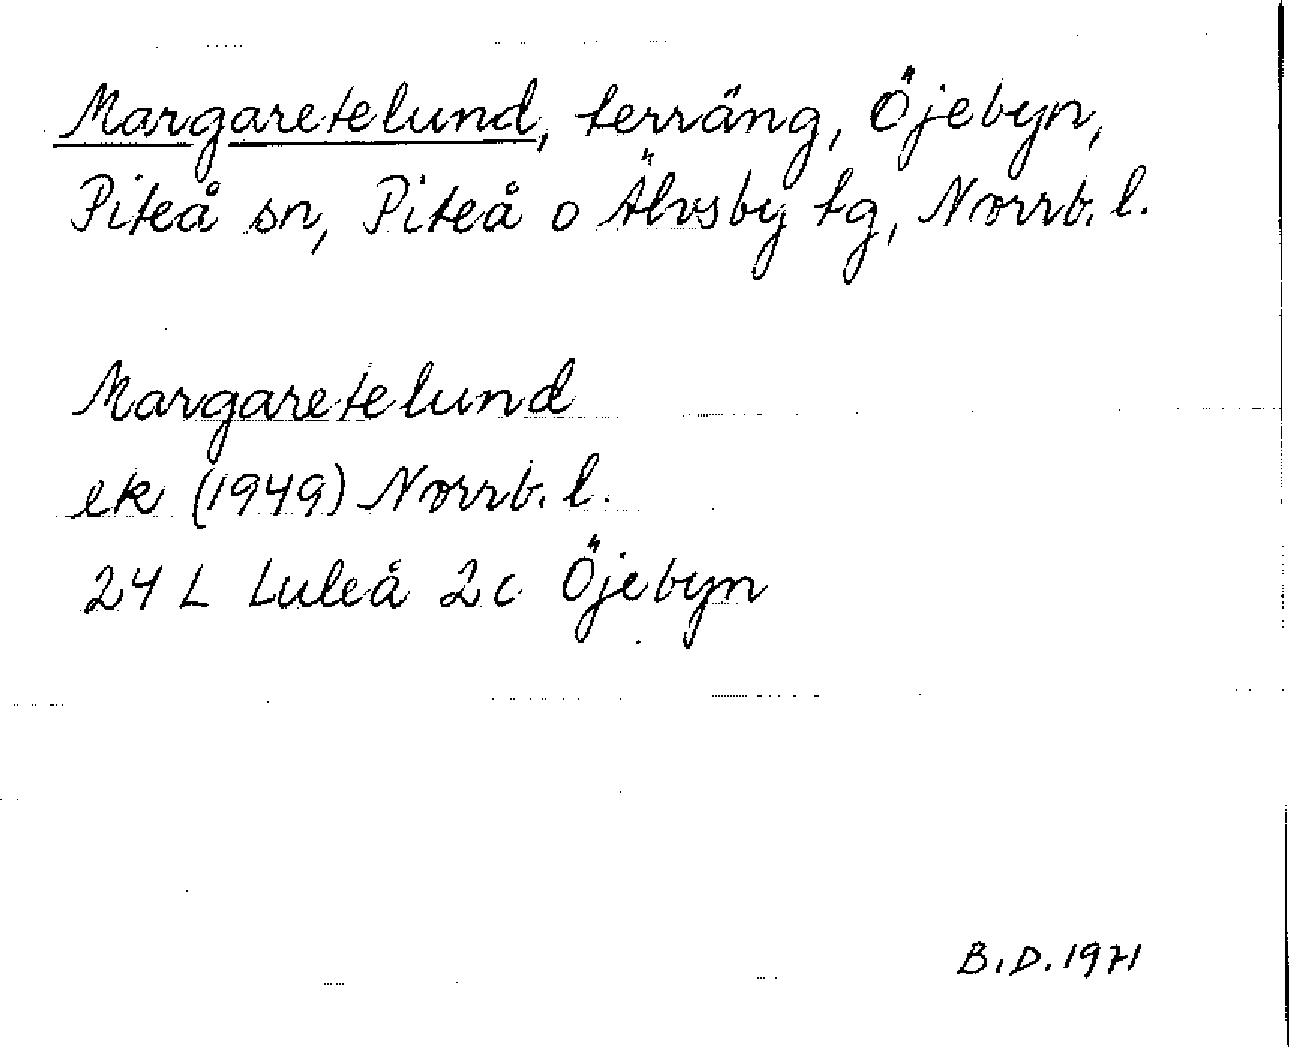 Margaretelund, terräng, Öjebyn,
Piteå sn, Piteå o Älvsby tg, Norrb. l.
Margaretelund
ek (1949) Norrb. l.
24 L Luleå 2c Öjebyn
B.D. 1971